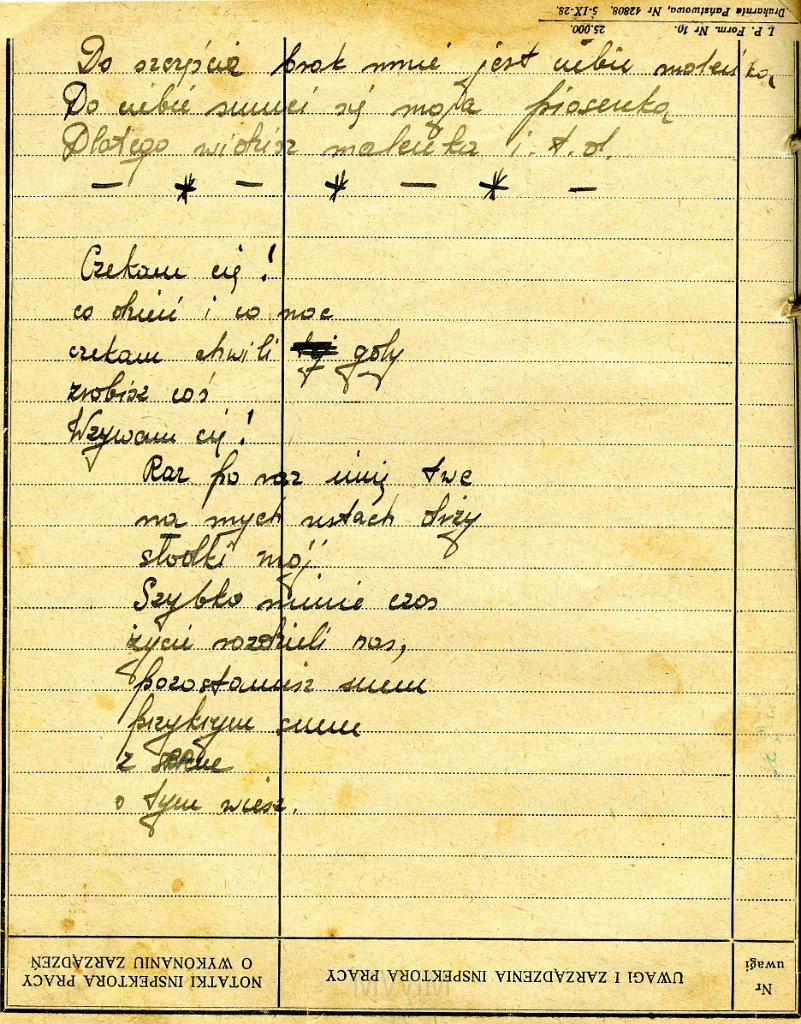 Drukarnia Państwowa, Nr 42808. 5-IX-28.
I. P. Form. Nr 10. 25.000.
Do szczęścia brak mnie jest ciebie maleńką
Do ciebie śmieci się moja piosenką
Dlatego widzisz maleńka i. t. d.
— * — * — * —
Czekam cię!
co dzień i co noc
czekam chwili gdy
zrobisz coś
Wzywam cię!
Raz po raz imię twe
na mych ustach drży
słodki mój
Szybko minie czas
życie rozdzieli nas,
pozostaniesz snem
przykrym snem
z
o tym wiesz.
NOTATKI INSPEKTORA PRACY O WYKONANIU ZARZĄDZEŃ
UWAGI I ZARZĄDZENIA INSPEKTORA PRACY
Nr uwagi